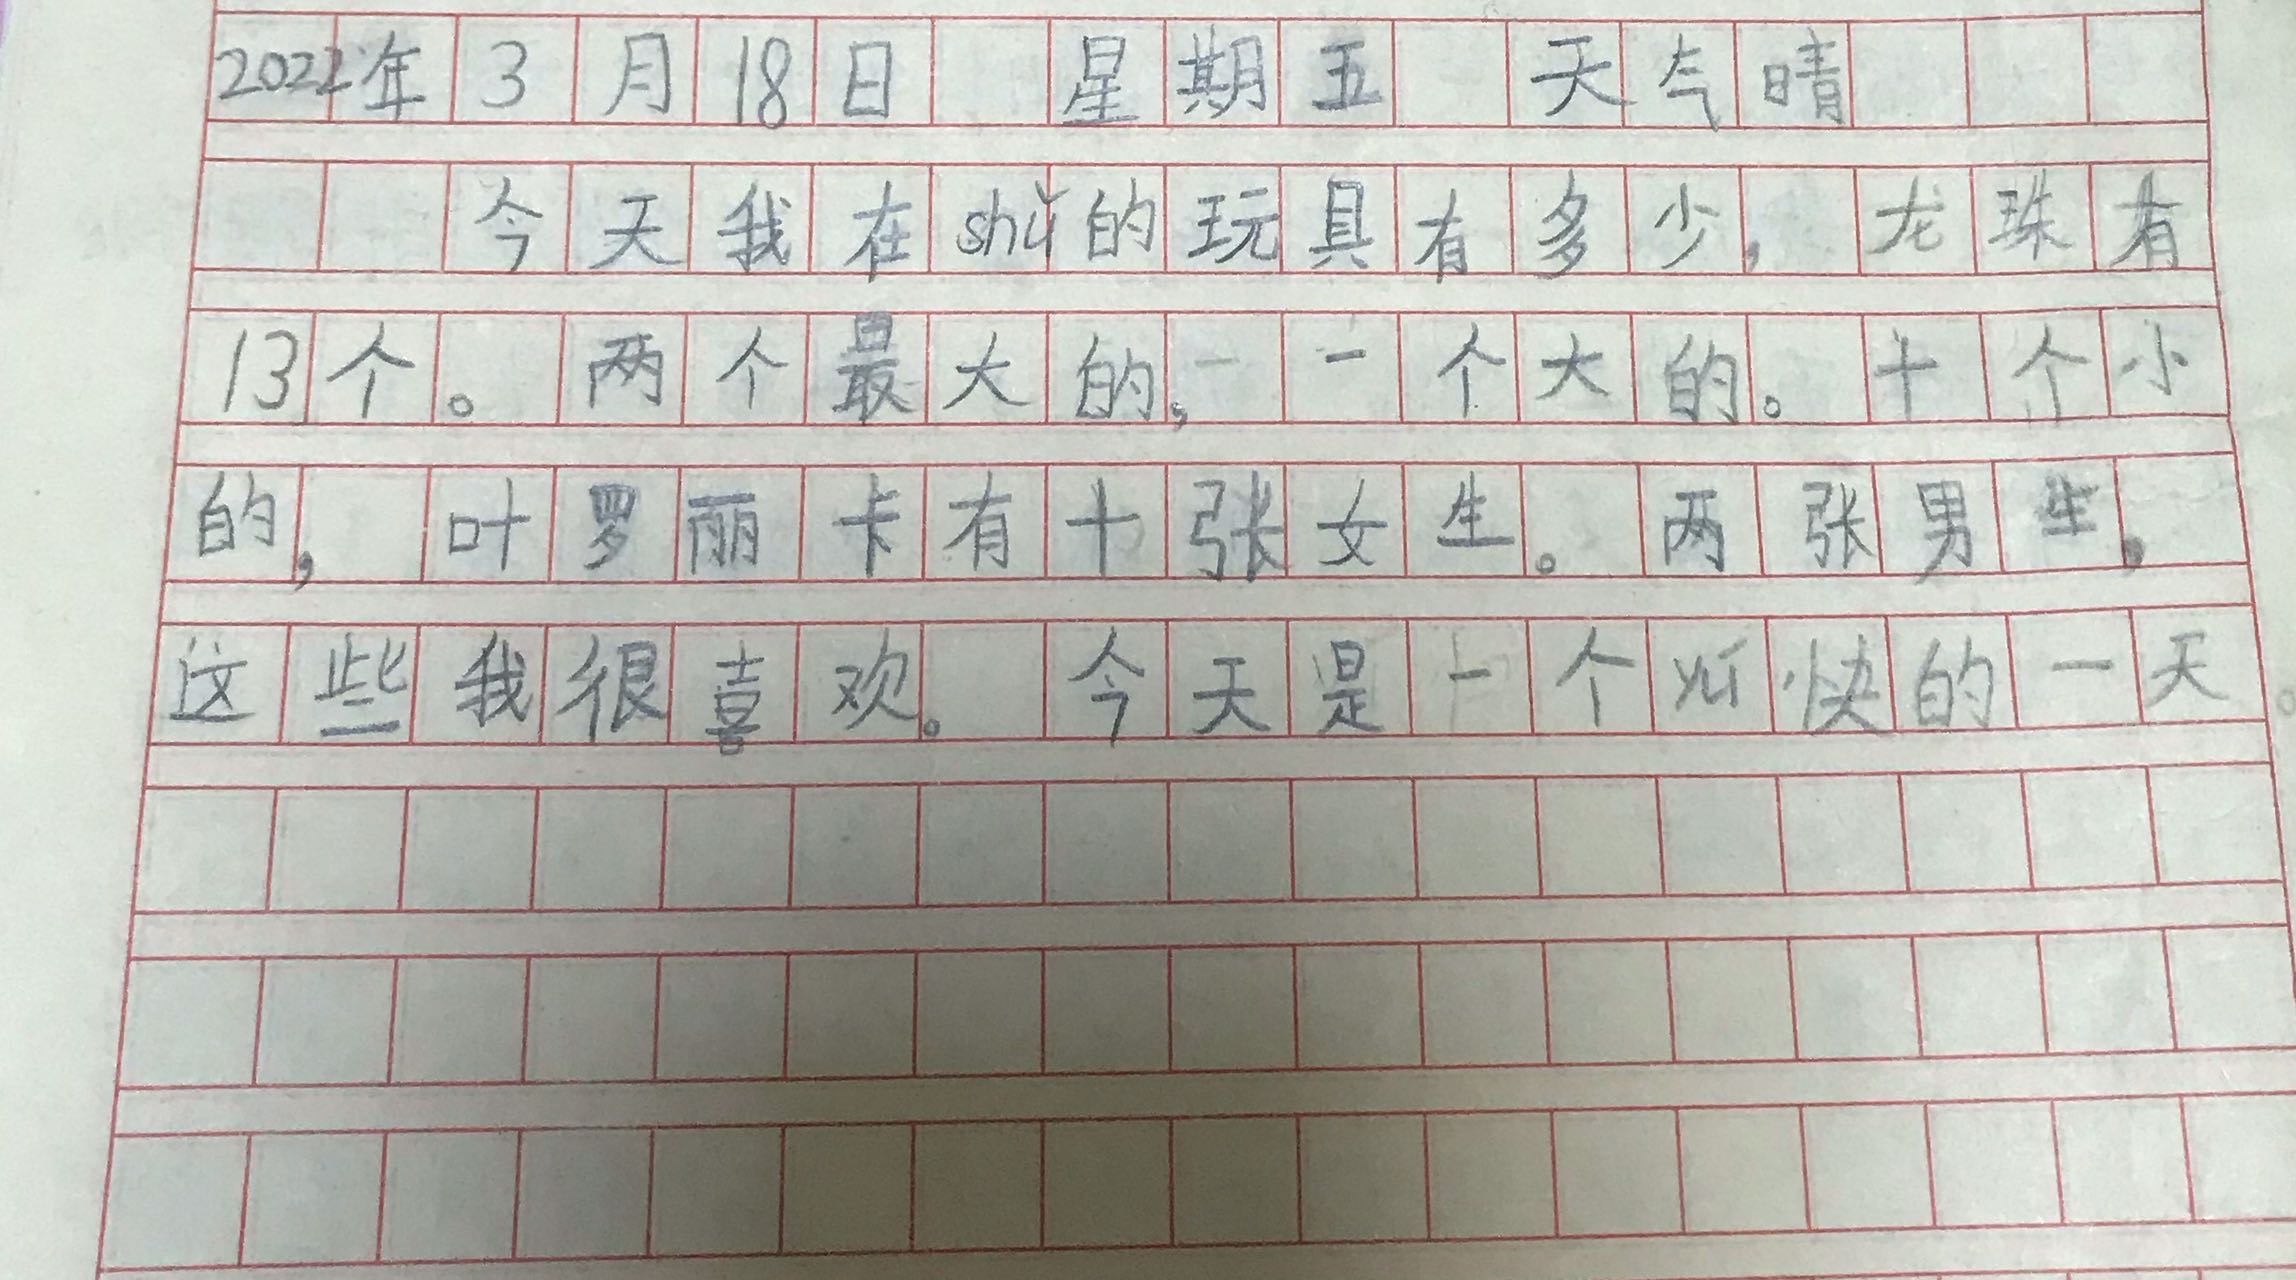 2022年3月18日 星期五 天气晴
今天我在shǔ的玩具有多少，龙珠有
13个。两个最大的，一个大的。十个小
的，叶罗丽卡有十张女生。两张男生，
这些我很喜欢。今天是一个yú快的一天。